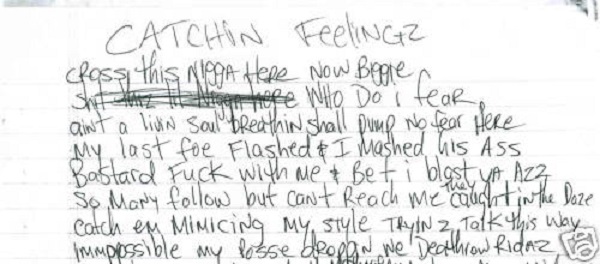 CATCHIN FEELINGZ
CROSS this NIGGA HERE NOW BIGGIE
Shit WHO Do i feaR
aint a livin Soul breathin shall pump No feaR Here
My last foe Flashed & I Mashed his Ass
Bastard Fuck with me & Bet i blast ya Azz
So Many follow but can't Reach Me they caught in the Daze
catch em Mimicing my style TRYIN 2 Talk this Way
Immpossible my Posse droppn we Deathrow Ridaz